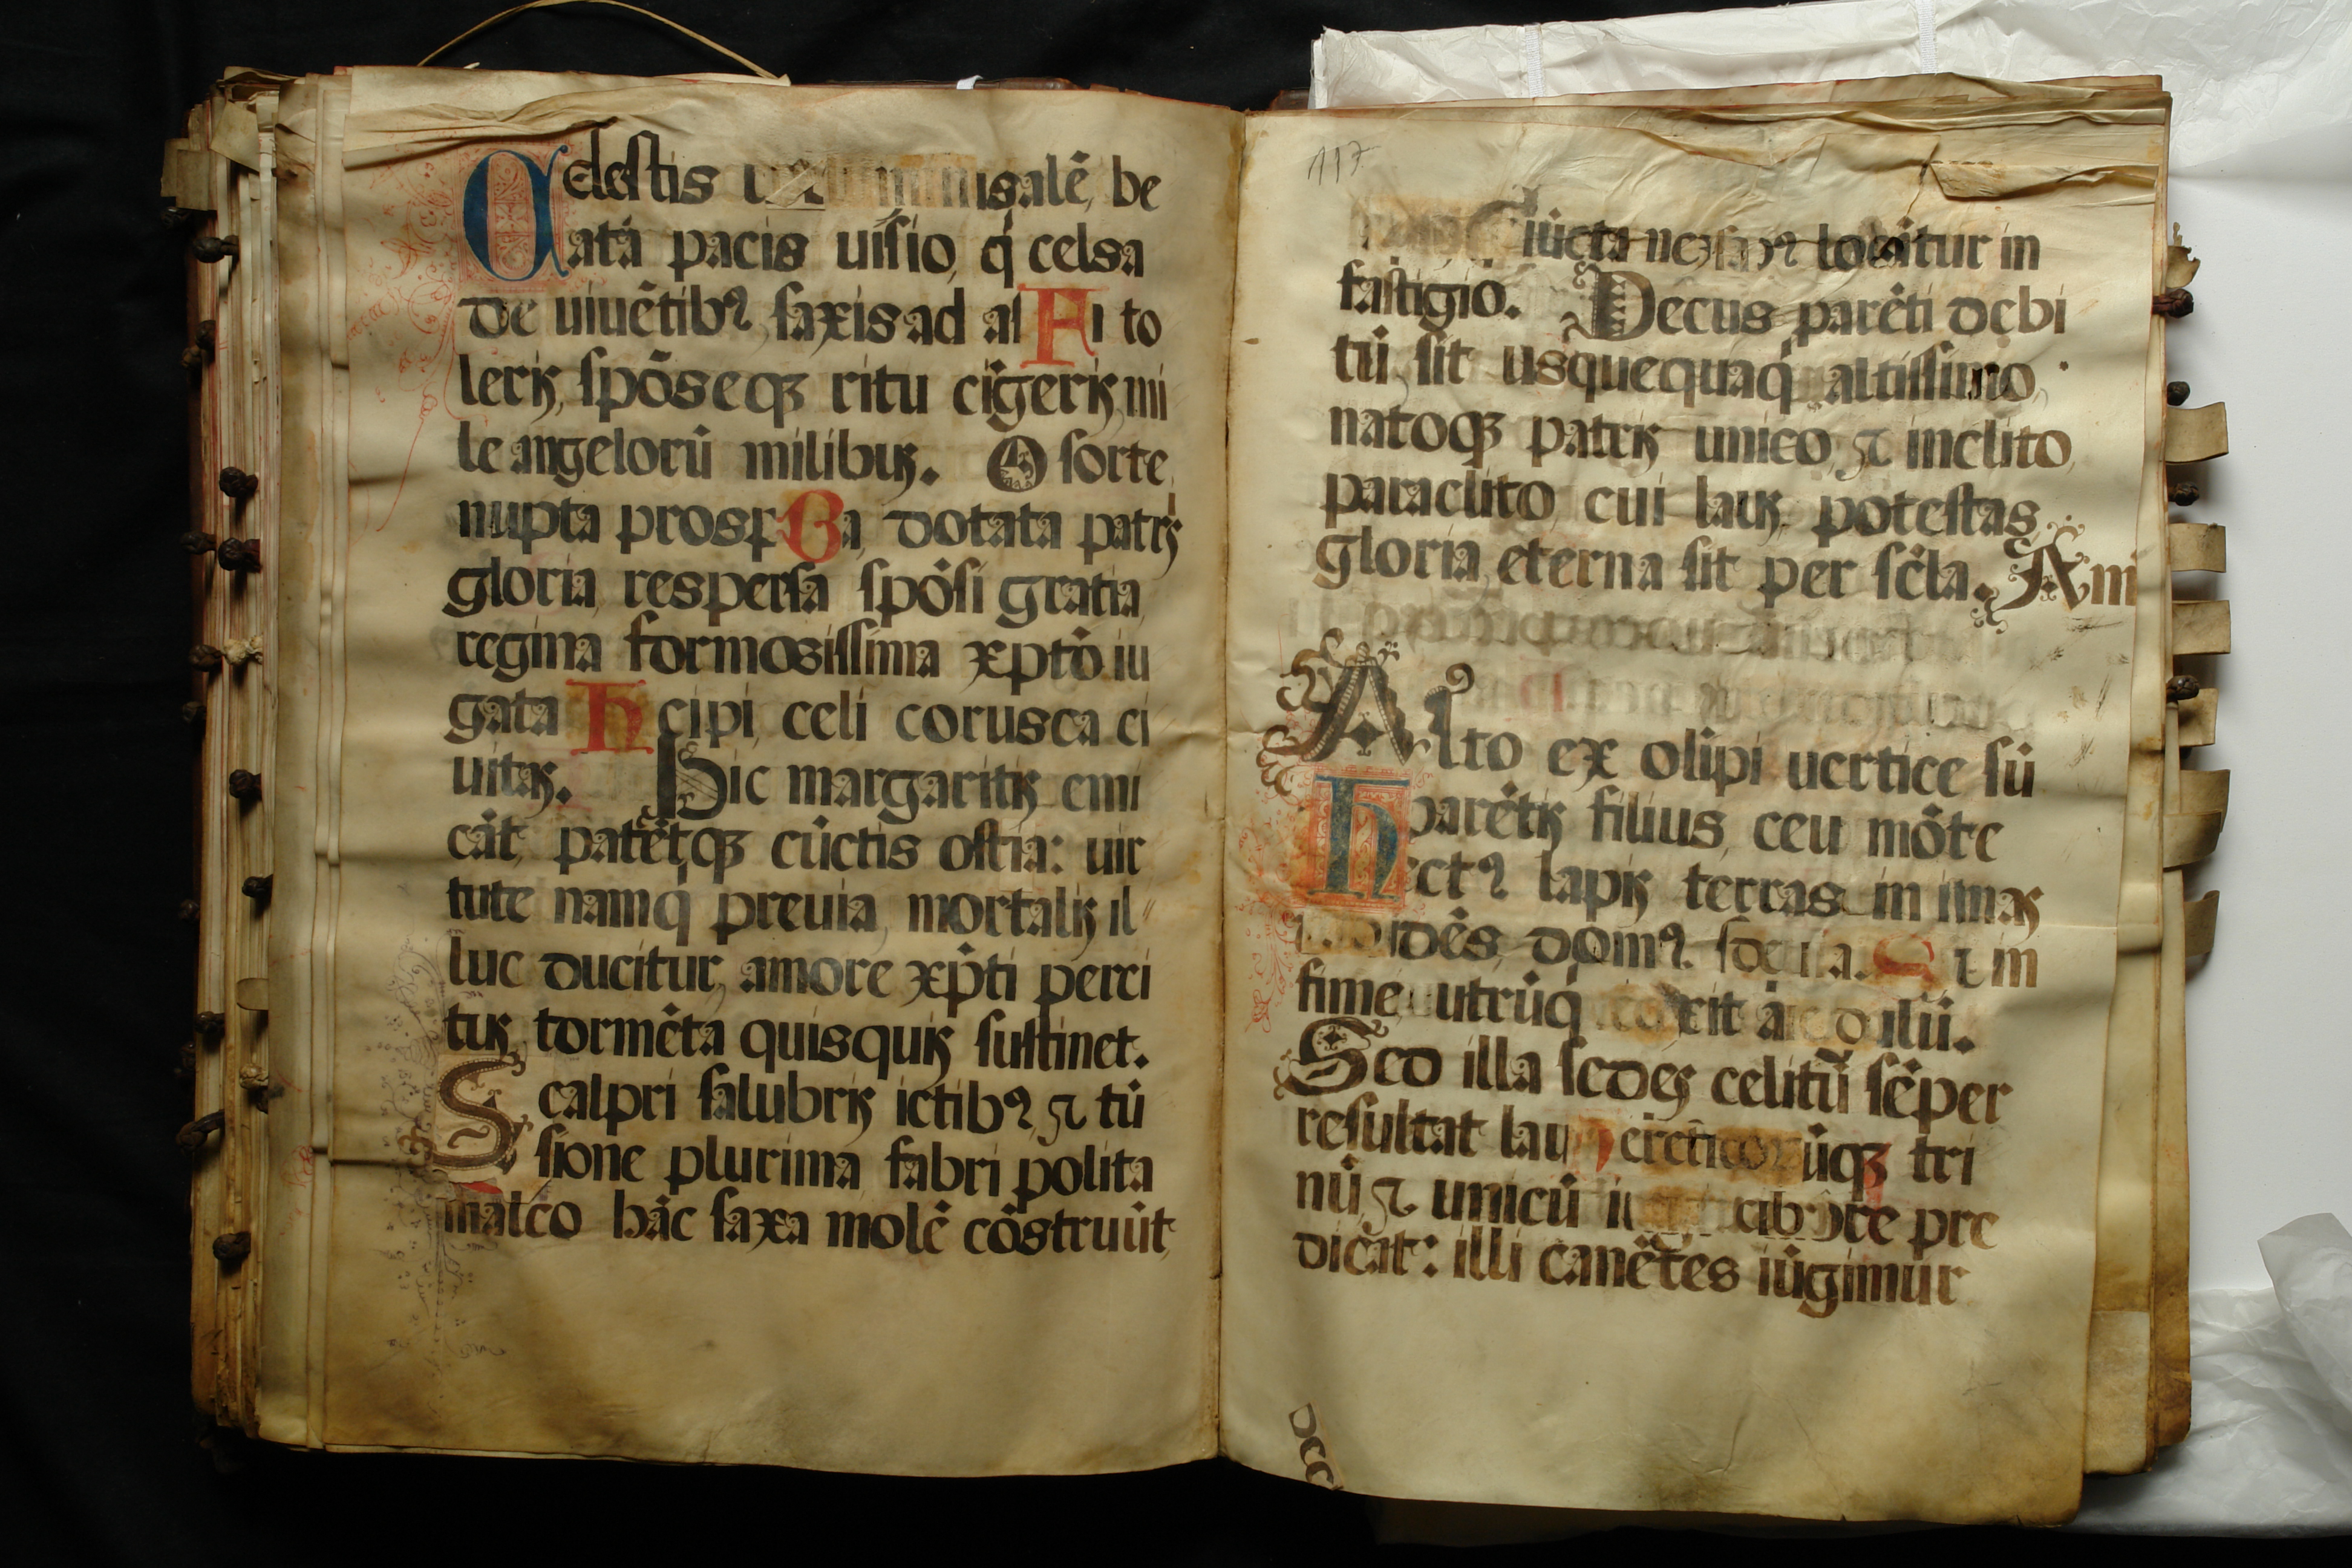 Celestis isalē, be
atā pacis uisio, q̇ celsa
de uiuētibꝰ saxis ad al i to
leris, spōseqꝫ ritu cīgeris, mi
le angelorū milibus. O sorte
nupta prosp a, dotata patris
gloria respersa spōsi gratia,
regina formosissima xp̄tō iu
gata cipi, celi corusca ci
uitas. Hic margaritis emi
cāt, patētqꝫ cūctis ostia: uir
tute namq̇ preuia, mortalis il
luc ducitur, amore xp̄ti perci
tus, tormēta quisquis sustinet.
Scalpri salubris ictibꝰ, ⁊ tū
sione plurima, fabri polita
malleo hāc saxa molē cōstruūt,
117
iūcta locātur in
fastigio. Decus parēti debi
tū, sit usquequaq̇ altissimo,
natoqꝫ patris unico, ⁊ inclito
paraclito, cui laus, potestas,
gloria, eterna sit per sc̄la. Am
Alto ex olīpi uertice sū
parētis filius, ceu mōte
ectꝰ lapis terras in imas
dēs, domꝰ im
fime utrūq̇
Sed illa sedes celitū sēper
resultat lau ūqꝫ tri
nū, ⁊ unicū pre
dicāt: illi canētes iūgimur
DCC